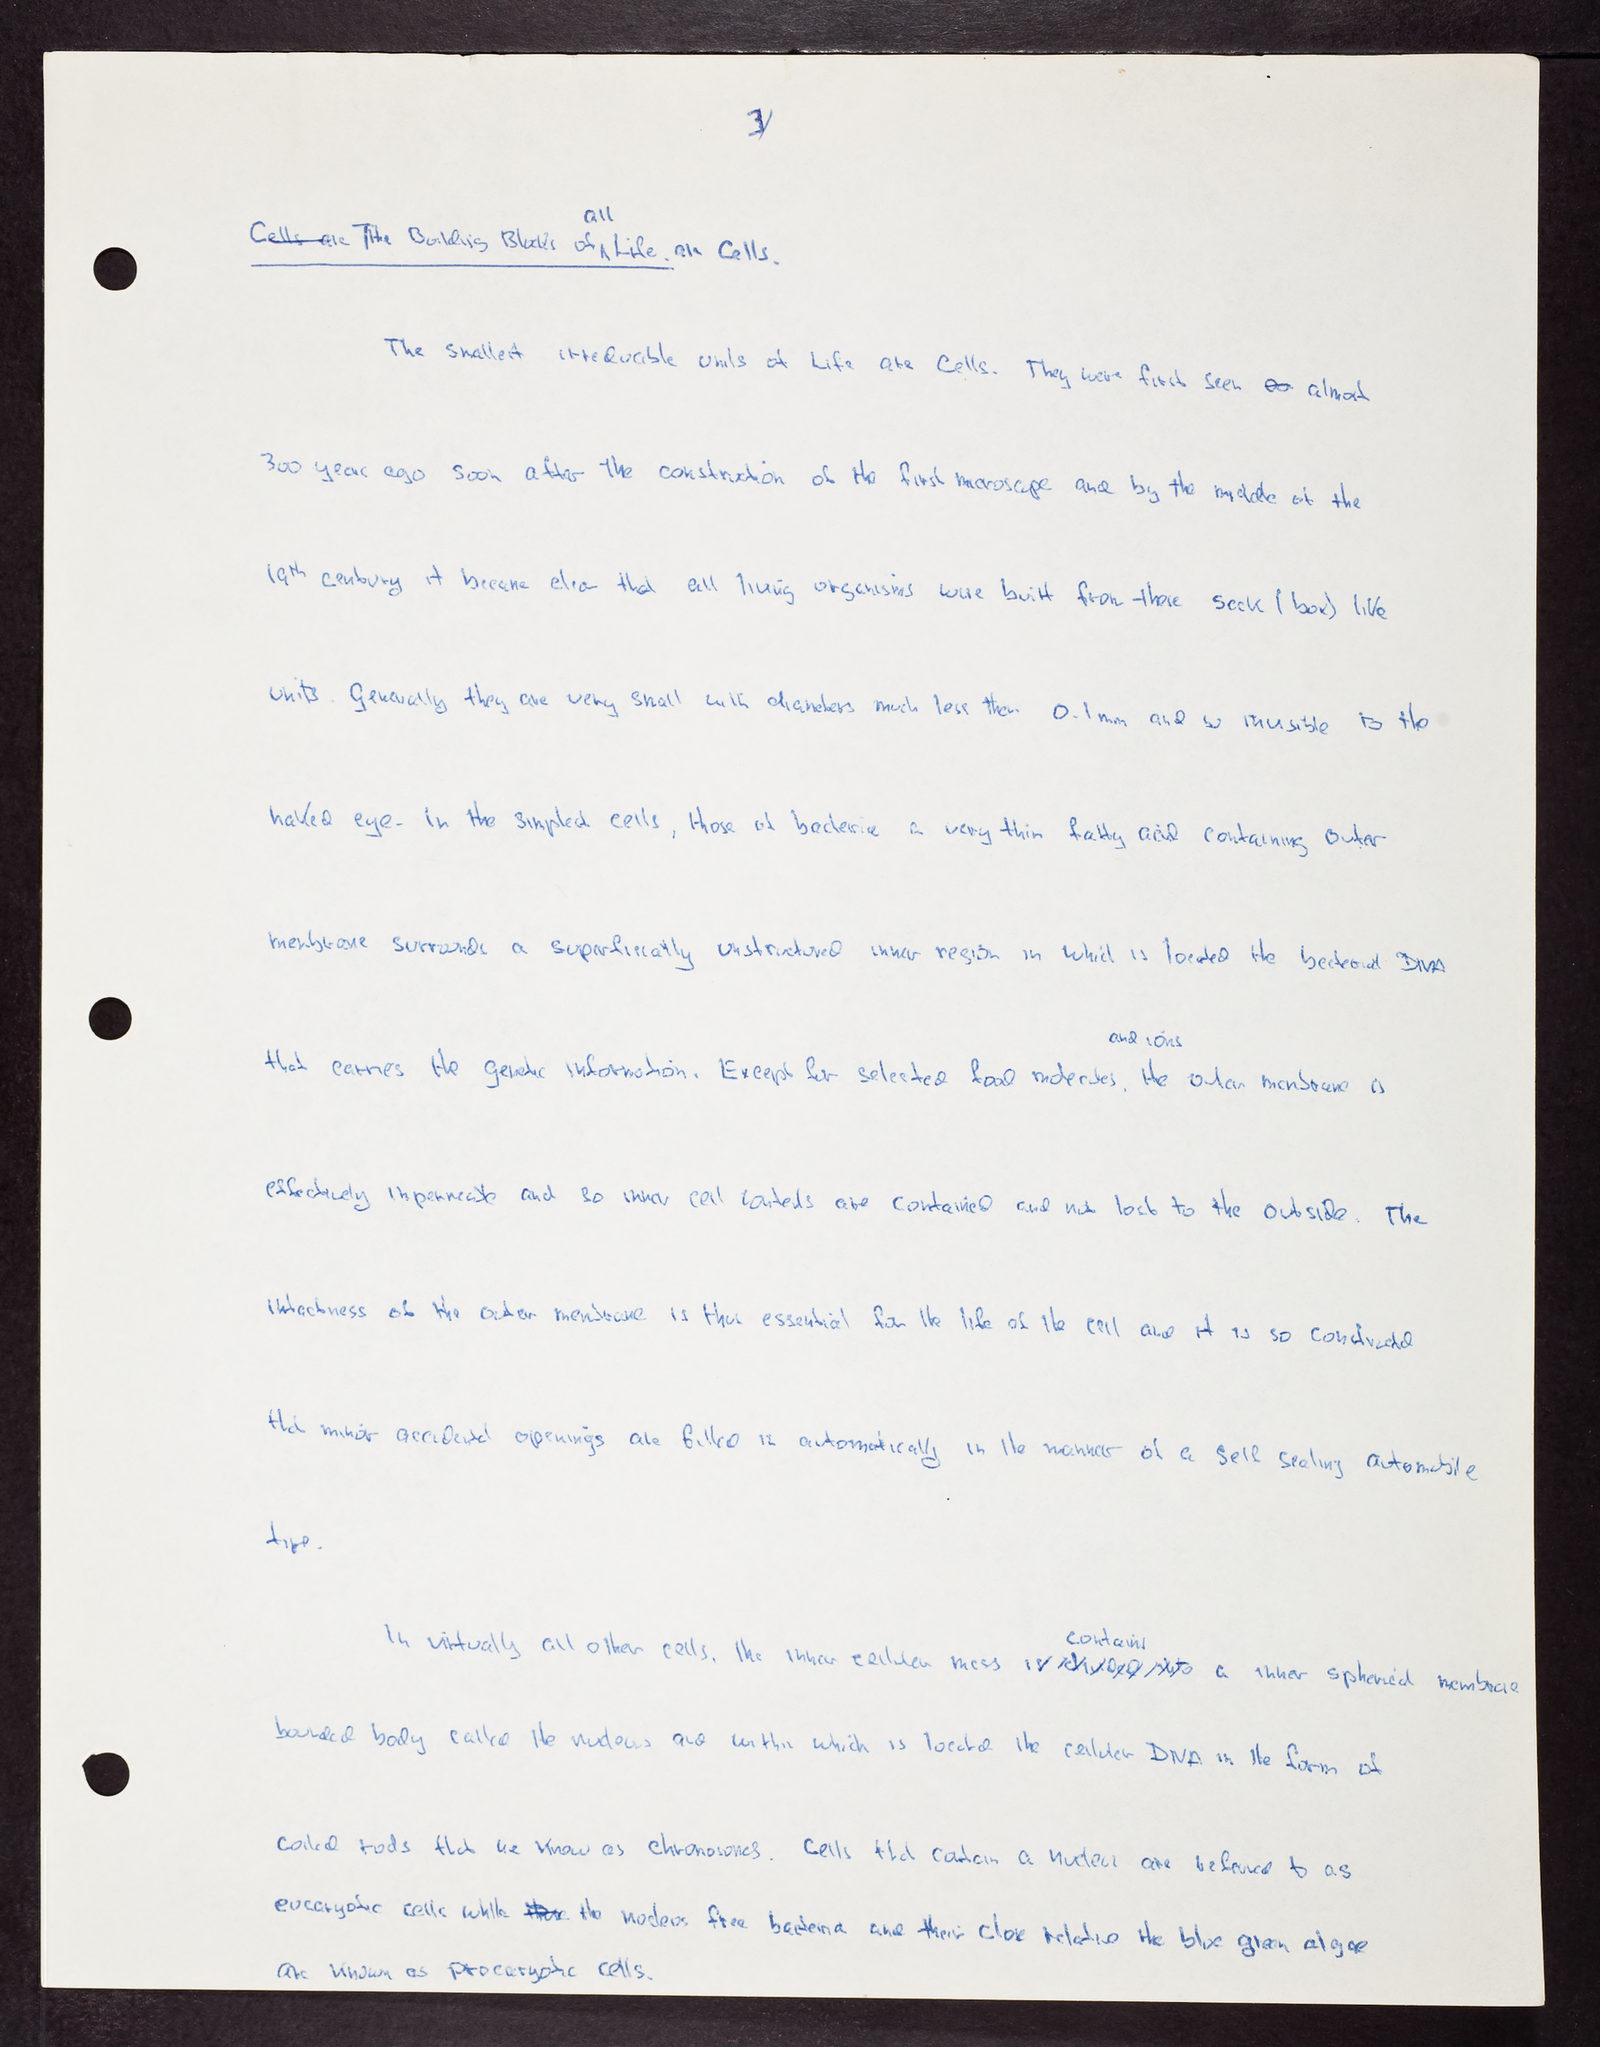 3/
all
Cells are The Building Blocks of ^ Life. are Cells.
The smallest irreducible units of Life are Cells. They were first seen almost
300 years ago soon after the construction of the first microscope and by the middle of the
19th century it became clear that all living organisms were built from these sack (box) like
units. Generally they are very small with diameters much less than 0.1 mm and so invisible to the
naked eye. In the simplest cells, those of bacteria a very thin fatty acid containing outer
membrane surrounds a superficially unstructured inner region in which is located the bacterial DNA
and ions
that carries the genetic information. Except for selected food molecules, the outer membrane is
effectively impermeable and so inner cell contents are contained and not lost to the outside. The
intactness of the outer membrane is thus essential for the life of the cell and it is so constructed
that minor accidental openings are filled in automatically in the manner of a self sealing automobile
tire.
contains
In virtually all other cells, the inner cellular mess is divided into a inner spherical membrane
bounded body called the nucleus and within which is located the cellular DNA in the form of
coiled rods that we know as chromosomes. Cells that contain a nucleus are referred to as
eucaryotic cells while those the nucleus free bacteria and their close relative the blue green algae
are known as procaryotic cells.